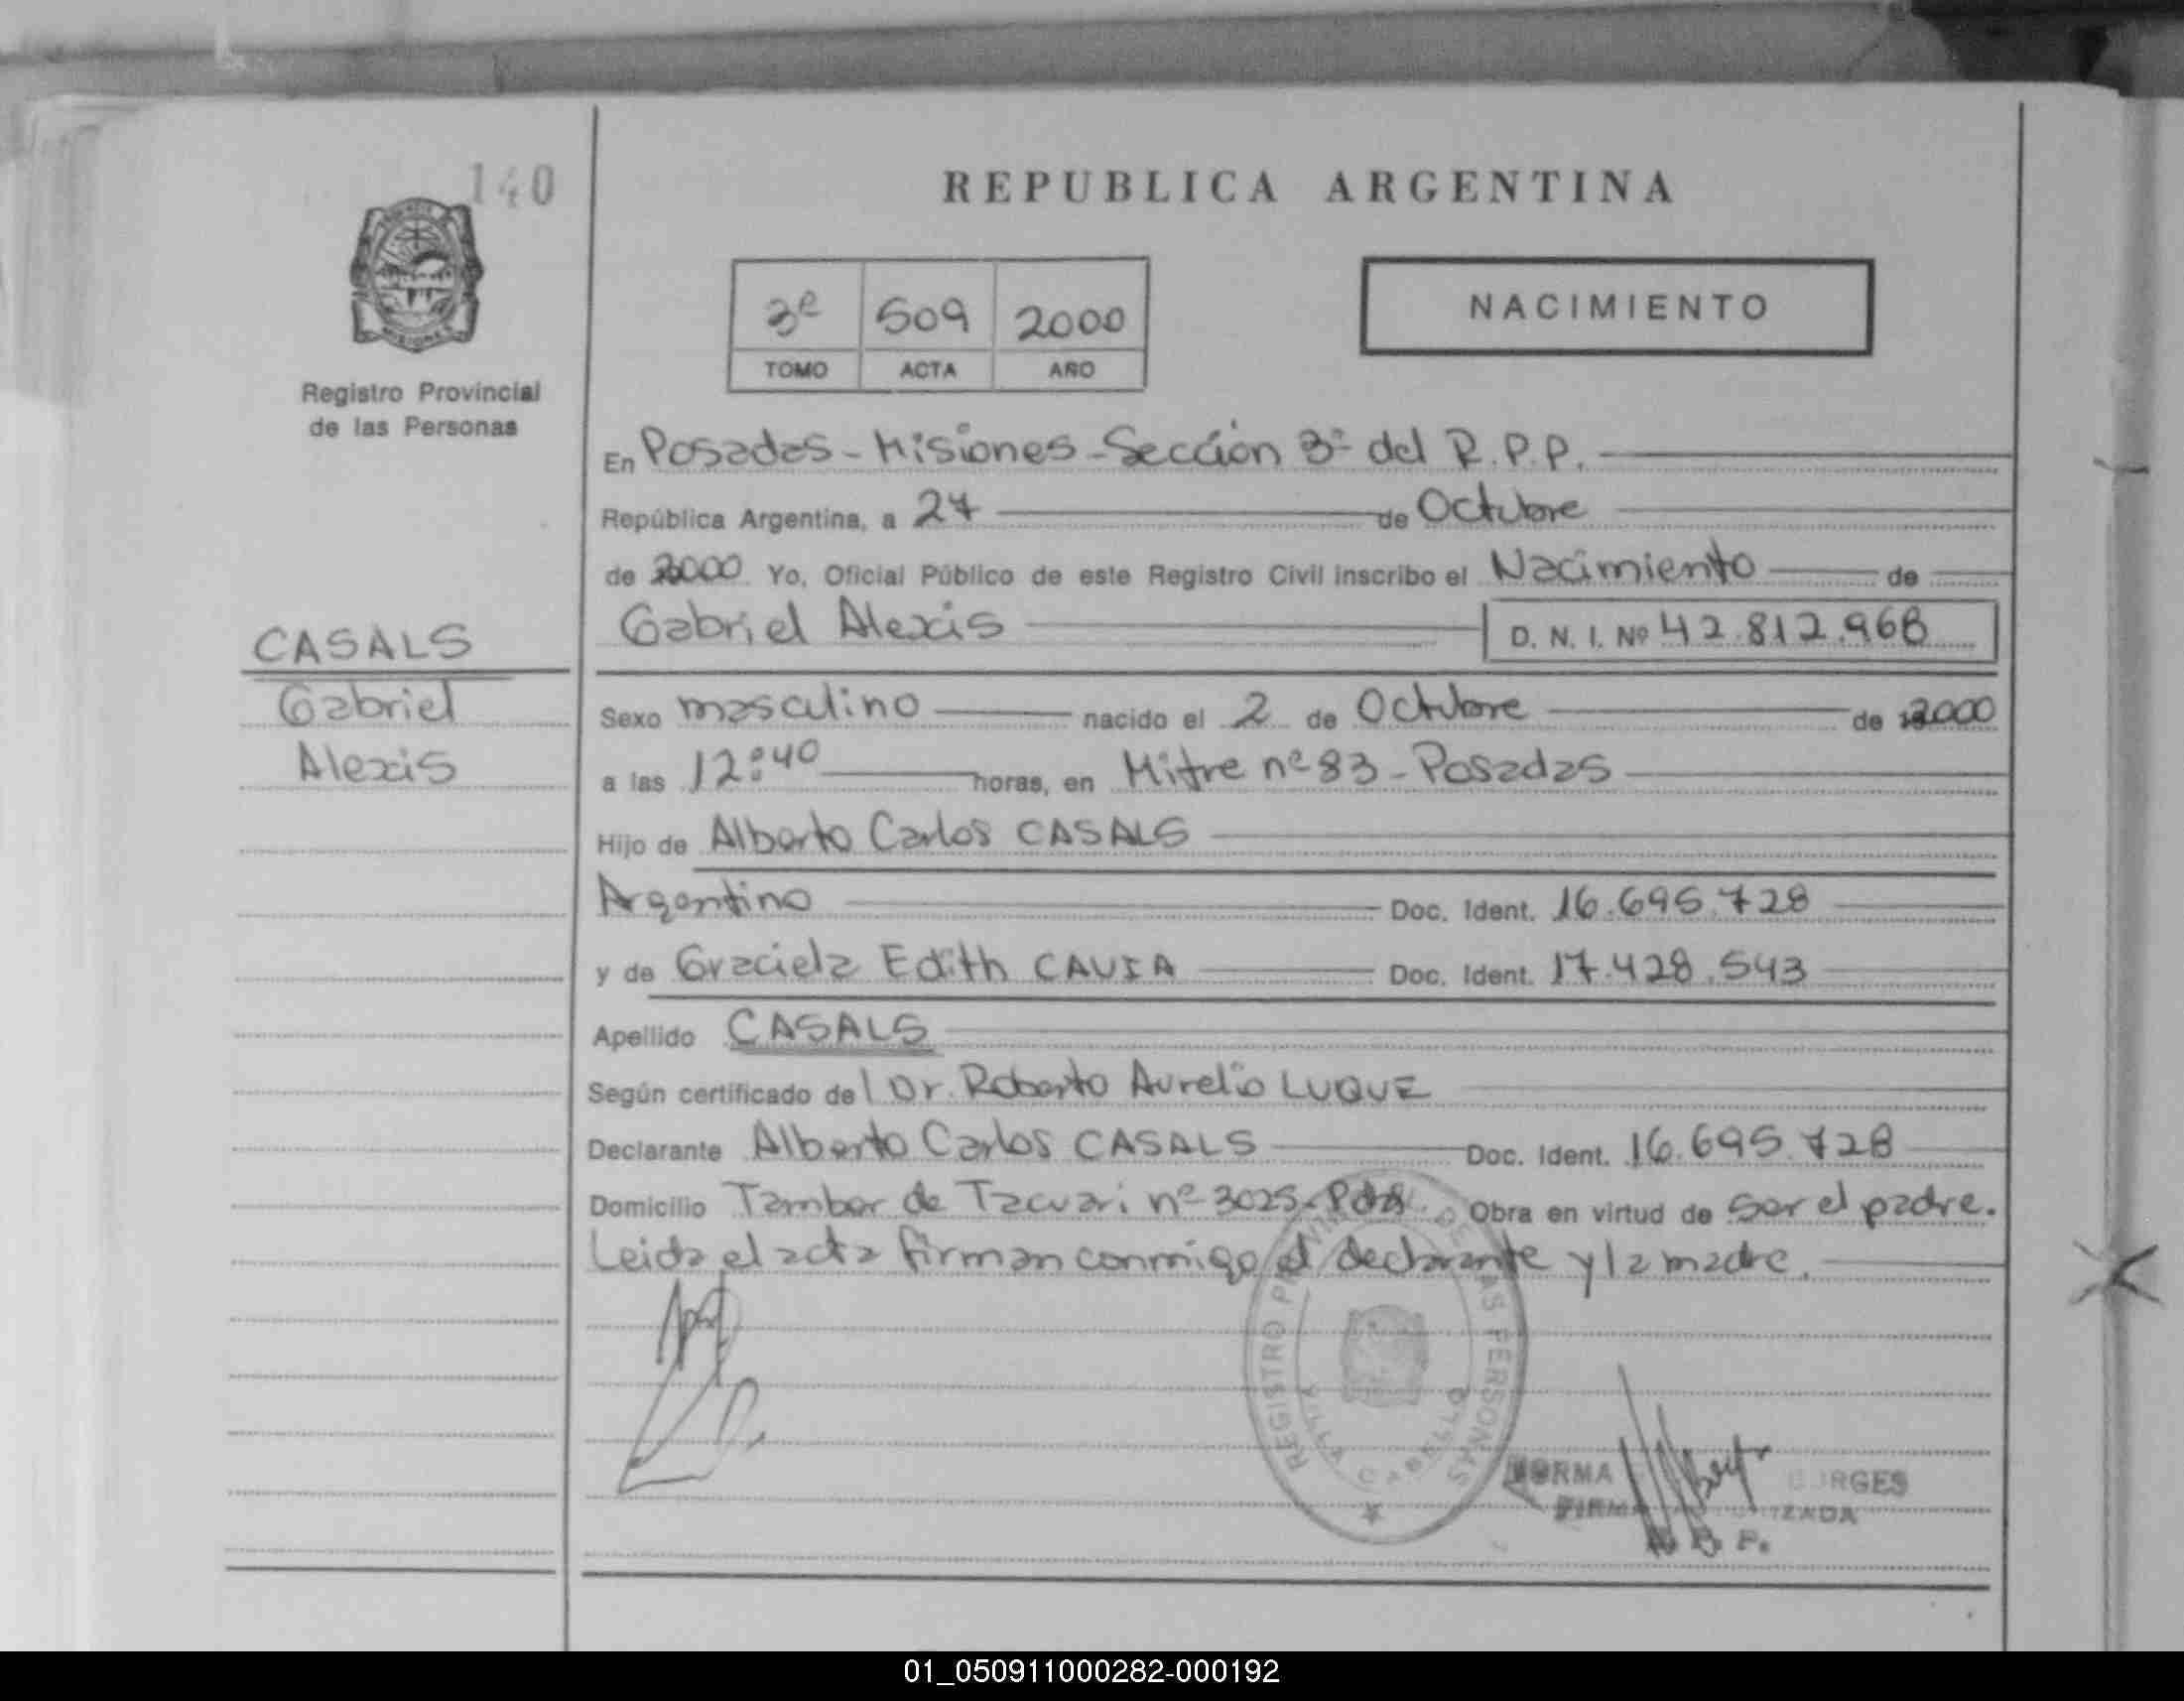 140
REPUBLICA ARGENTINA
3º 509 2000
TOMO ACTA AÑO
NACIMIENTO
Registro Provincial
de las Personas
En Posadas - Misiones - Sección 3ª del R.P.P.
República Argentina, a 27 de Octubre
de 2000 Yo, Oficial Público de este Registro Civil inscribo el Nacimiento de
Gabriel Alexis D. N. I. Nº 42.812.968
CASALS
Gabriel
Alexis
Sexo masculino nacido el 2 de Octubre de 2000
a las 12:40 horas, en Mitre nº 83 - Posadas
Hijo de Alberto Carlos CASALS
Argentino Doc. Ident. 16.695.728
y de Graciela Edith CAVIA Doc. Ident. 17.428.543
Apellido CASALS
Según certificado del Dr. Roberto Aurelio LUQUE
Declarante Alberto Carlos CASALS Doc. Ident. 16.695.728
Domicilio Tambor de Tacuari nº 3025 - Pdas. Obra en virtud de ser el padre.
Leida el acta firman conmigo el declarante y la madre.
REGISTRO DE LAS PERSONAS
VILLA CABELLO
NORMA
01_050911000282-000192